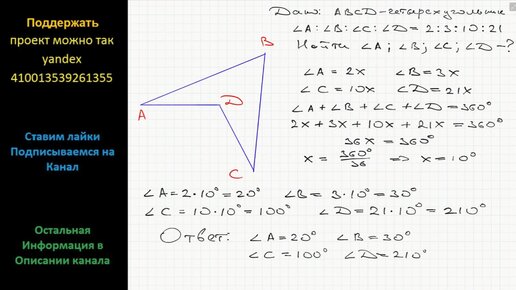 Поддержать
проект можно так
yandex
410013539261355
Ставим лайки
Подписываемся на
Канал
Остальная
Информация в
Описании канала
A
B
D
C
Дано: ABCD – четырехугольник
∠A : ∠B : ∠C : ∠D = 2 : 3 : 10 : 21
Найти ∠A ; ∠B ; ∠C ; ∠D – ?
∠A = 2x ∠B = 3x
∠C = 10x ∠D = 21x
∠A + ∠B + ∠C + ∠D = 360°
2x + 3x + 10x + 21x = 360°
36x = 360°
x = 360°/36 ⇒ x = 10°
∠A = 2·10° = 20° ∠B = 3·10° = 30°
∠C = 10·10° = 100° ∠D = 21·10° = 210°
Ответ: ∠A = 20° ∠B = 30°
∠C = 100° ∠D = 210°